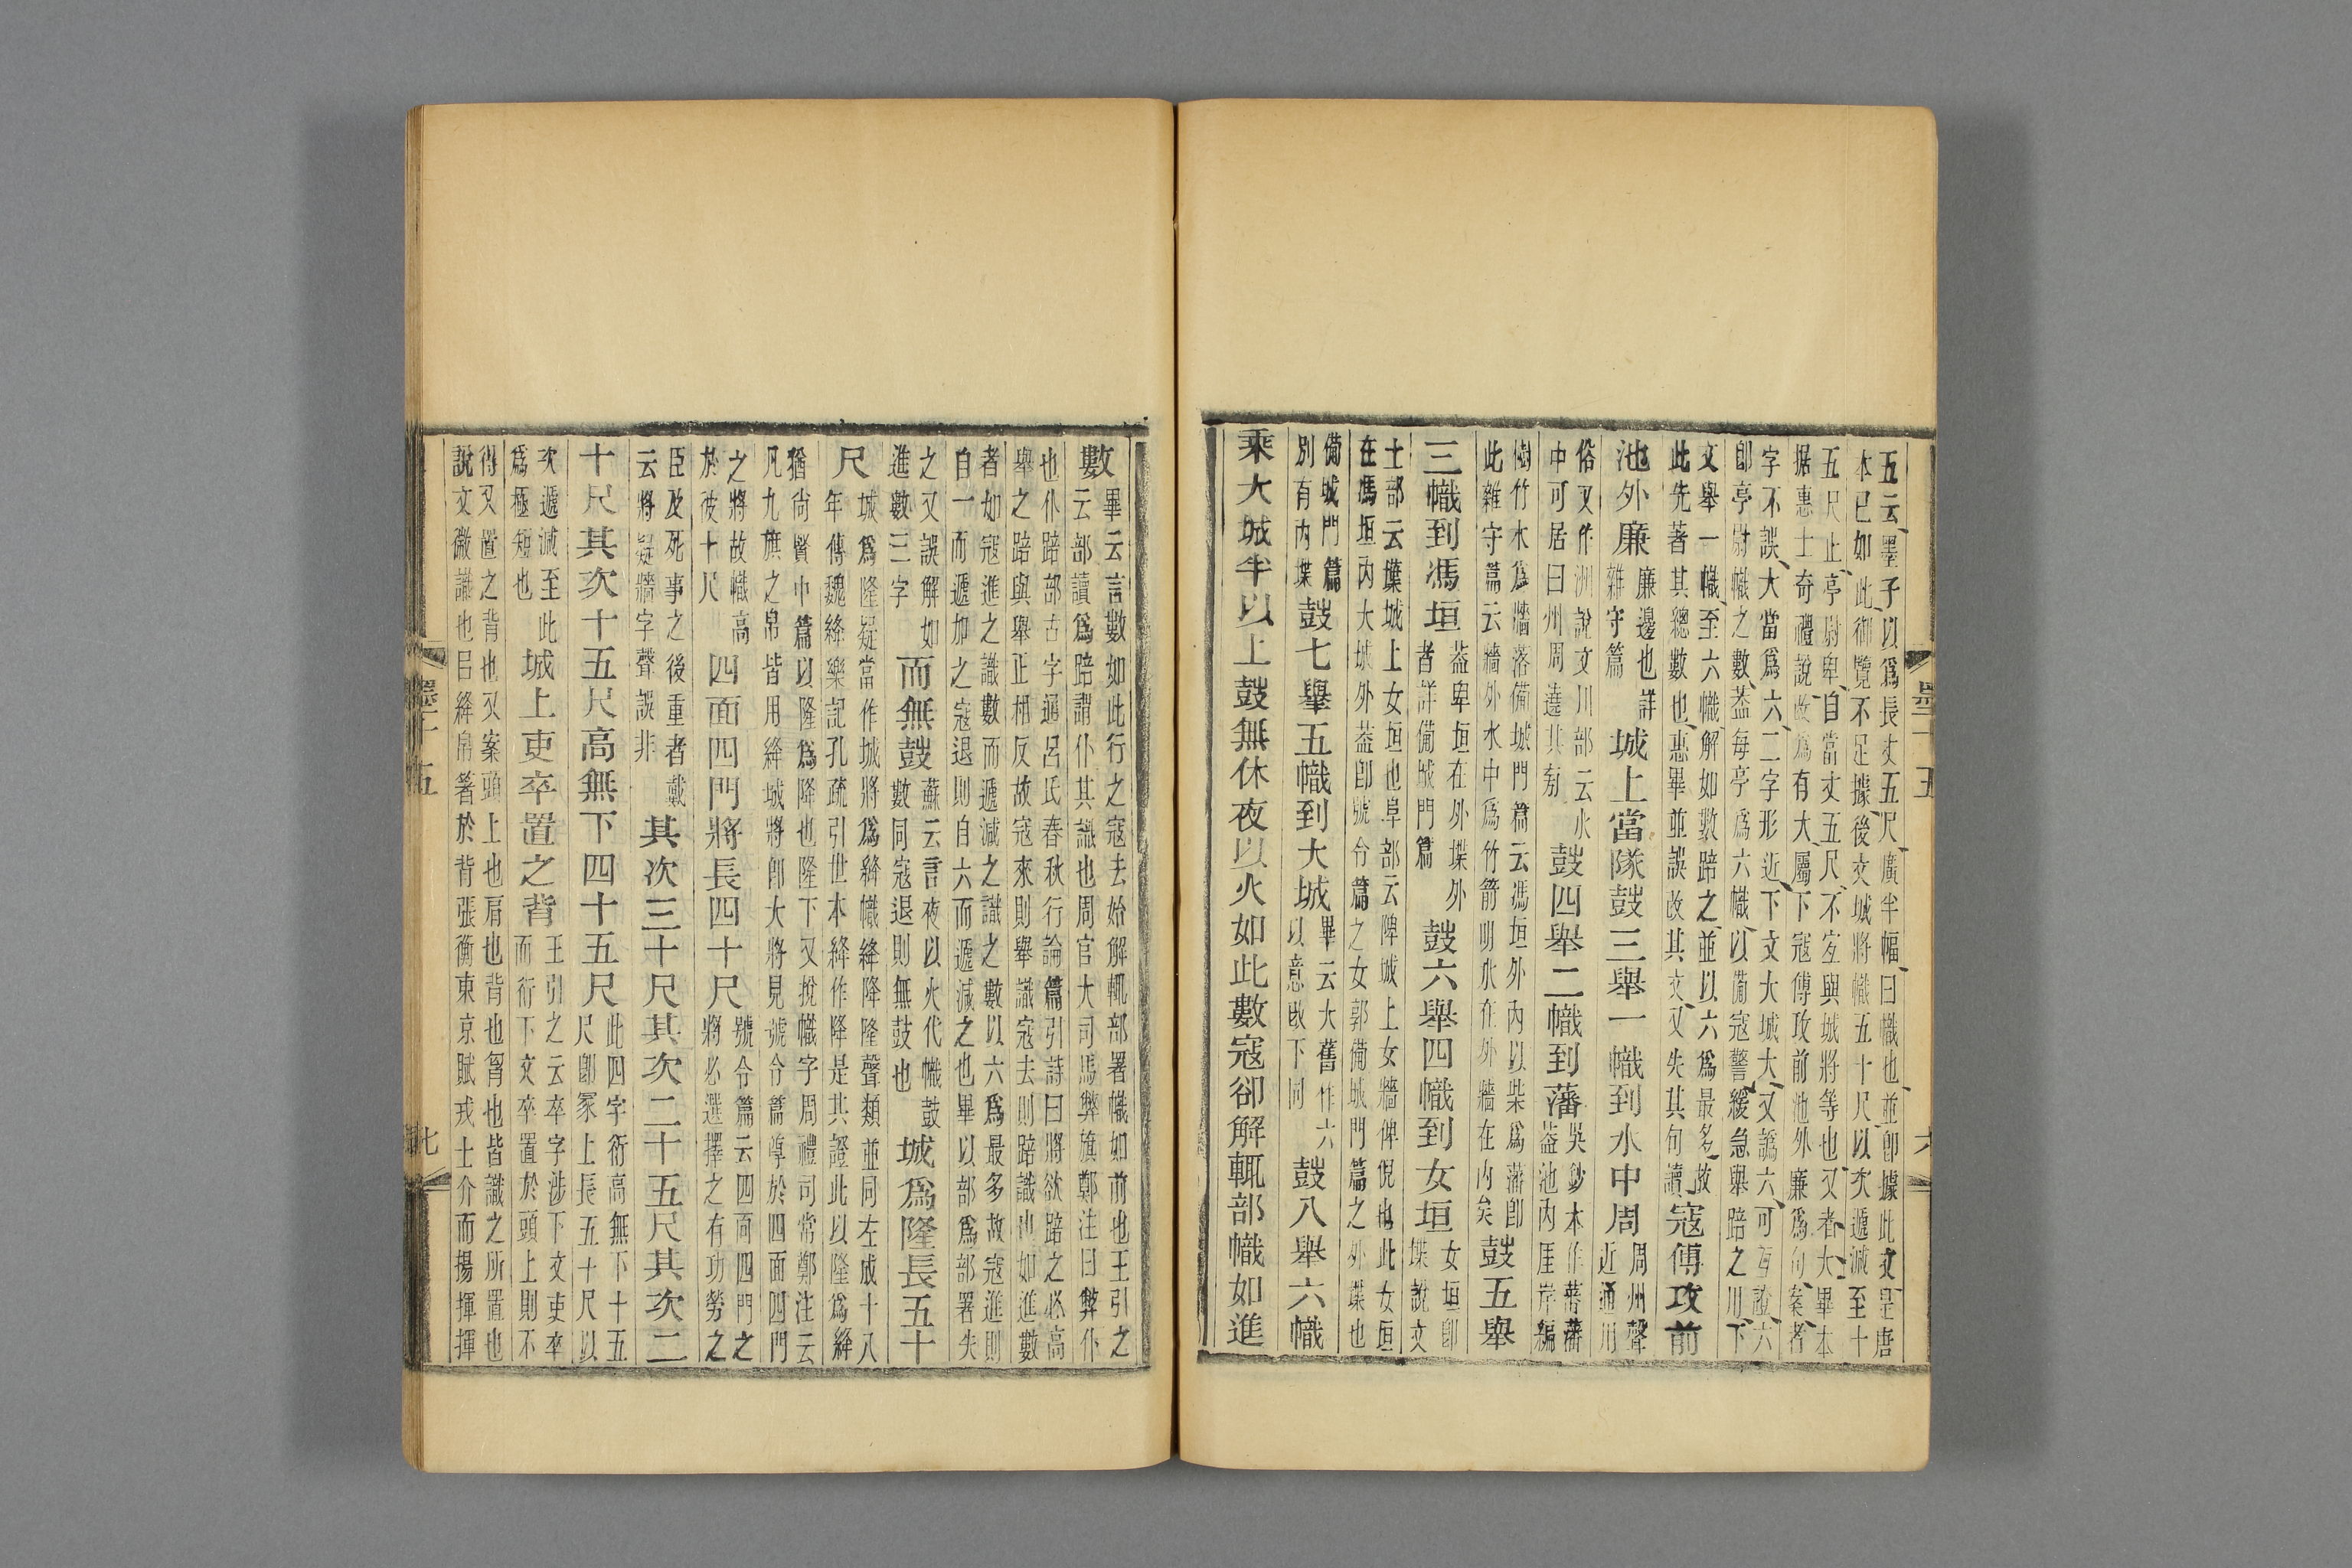 五云、墨子、以爲長丈五尺、廣半幅、曰幟也、並卽據此文、是唐
本已如此、御覽不足據、後文城將幟五十尺、以次遞減至十
五尺止、亭尉卑、自當丈五尺、不宐與城將等也、又者大畢本
据惠士奇禮說改爲有大、屬下寇傅攻前池外廉爲句、案者
字不誤、大當爲六、二字形近、下文大城大、又譌六、可互證、六
卽亭尉幟之數、葢每亭爲六幟、以備寇警緩急、舉踣之用、下
文舉一幟、至六幟、解如數踣之、並以六爲最多、故
此先著其總數也、惠畢並誤改其文、又失其句讀、
寇傅攻前
池外廉
廉邊也詳
雜守篇
城上當隊鼓三舉一幟到水中周
周州聲
近通用
俗又作洲說文川部云水
中可居曰州周遶其旁
鼓四舉二幟到藩
吳鈔本作蕃藩
葢池內厓岸編
樹竹木爲牆落備城門篇云馮垣外內以柴爲藩卽
此雜守篇云牆外水中爲竹箭明水在外牆在內矣
鼓五舉
三幟到馮垣
葢卑垣在外堞外
者詳備城門篇
鼓六舉四幟到女垣
女垣卽
堞說文
土部云堞城上女垣也阜部云陴城上女牆俾倪也此女垣
在馮垣內大城外葢卽號令篇之女郭備城門篇之外堞也
備城門篇
別有內堞
鼓七舉五幟到大城
畢云大舊作六
以意改下同
鼓八舉六幟
乘大城半以上鼓無休夜以火如此數寇卻解輒部幟如進
墨十五
六
數
畢云言數如此行之寇去始解輒部署幟如前也王引之
云部讀爲踣謂仆其識也周官大司馬弊旗鄭注曰弊仆
也仆踣部古字通呂氏春秋行論篇引詩曰將欲踣之必高
舉之踣與舉正相反故寇來則舉識寇去則踣識也如進數
者如寇進之識數而遞減之識之數以六爲最多故寇進則
自一而遞加之寇退則自六而遞減之也畢以部爲部署失
之又誤解如
進數三字
而無鼓
蘇云言夜以火代幟鼓
數同寇退則無鼓也
城爲隆長五十
尺
城爲隆疑當作城將爲絳幟絳降隆聲類並同左成十八
年傳魏絳樂記孔疏引世本絳作降是其證此以隆爲絳
猶尙賢中篇以隆爲降也隆下又挩幟字周禮司常鄭注云
凡九旗之帛皆用絳城將卽大將見號令篇尊於四面四門
之將故幟高
於彼十尺
四面四門將長四十尺
號令篇云四面四門之
將必選擇之有功勞之
臣及死事之後重者戴
云將疑牆字聲誤非
其次三十尺其次二十五尺其次二
十尺其次十五尺高無下四十五尺
此四字衍高無下十五
尺卽冢上長五十尺以
次遞減至此
爲極短也
城上吏卒置之背
王引之云卒字涉下文吏卒
而衍下文卒置於頭上則不
得又置之背也又案頭上也肩也背也胷也皆識之所置也
說文微識也㠯絳帛著於背張衡東京賦戎士介而揚揮揮
墨十五
七